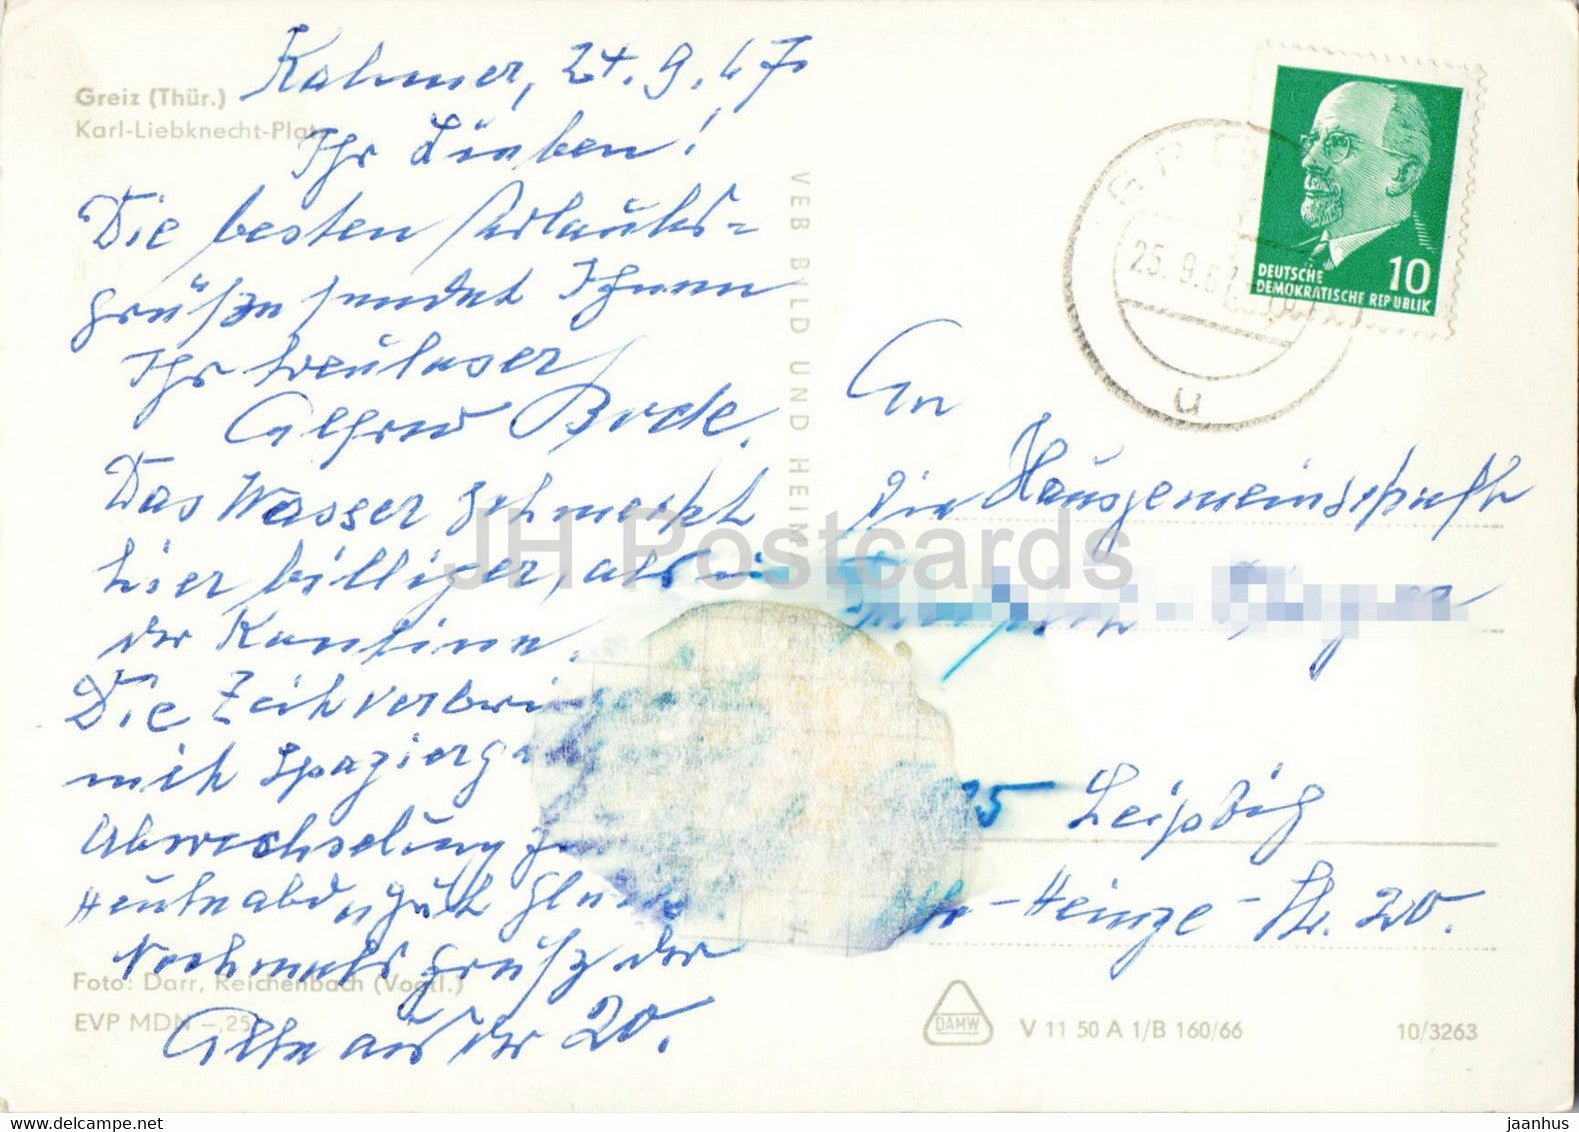 Greiz (Thür.)
Karl-Liebknecht-Platz
Kahmer, 24.9.67.
Ihr Lieben!
Die besten Urlaubs=
grüße sendet Ihnen
Ihr treuloser
Alfred Bode.
Das Wasser schmeckt
hier billiger, als in
der Kantine.
Die Zeit verbri
mit Spazierg
Abwechselung
Heute abd
Nochmals Gruß der
Alte aus der 20.
Foto: Darr, Reichenbach (Vogtl.)
EVP MDN –,25
VEB BILD UND HEIM
DEUTSCHE
DEMOKRATISCHE REPUBLIK
10
25.9.6
u
An
die Hausgemeinschaft
Leipzig
-Heinze-Str. 20.
DAMW
V 11 50 A 1/B 160/66
10/3263
JH Postcards
My delcampe.net store
jaanhus